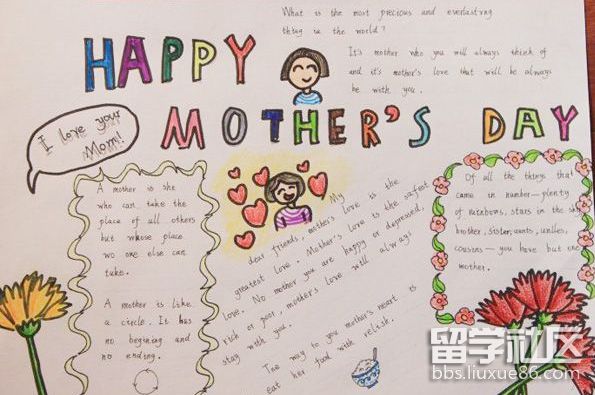 What is the most precious and everlasting
thing in the world?
It's mother who you will always think of
and it's mother's love that will be always
be with you.
HAPPY
MOTHER'S DAY
I love your
Mom!
A mother is she
who can take the
place of all others
but whose place
wo one else can
take.
A mother is like
a circle. It has
no begining and
no ending.
My
dear friends, mother's love is the
greatest love. Mother's love is the safest
love. No mother you are happy or depressed,
rich or poor, mother's love will always
stay with you.
The way to you mother's heart is
eat her food with relish.
Of all the things that
came in number—plenty
of rainbows, stars in the sky
brother, sister, aunts, unlles,
cousins—you have but one
mother.
留学社区
bbs.liuxue86.com